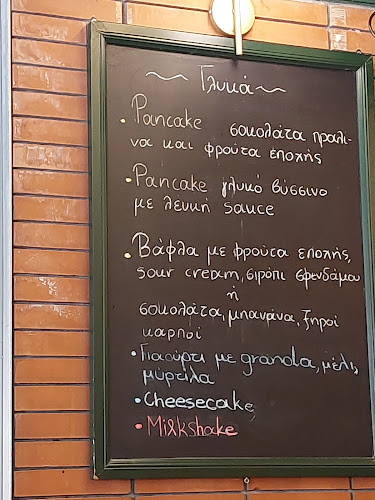 ~ Γλυκά ~
• Pancake σοκολάτα πραλί-
να και φρούτα εποχής
• Pancake γλυκό βύσσινο
με λευκή sauce
• Βάφλα με φρούτα εποχής,
sour cream, σιρόπι σφενδάμου
ή
σοκολάτα, μπανάνα, ξηροί
καρποί
• Γιαούρτι με granola, μέλι,
μύρτιλα
• Cheesecake
• Milkshake